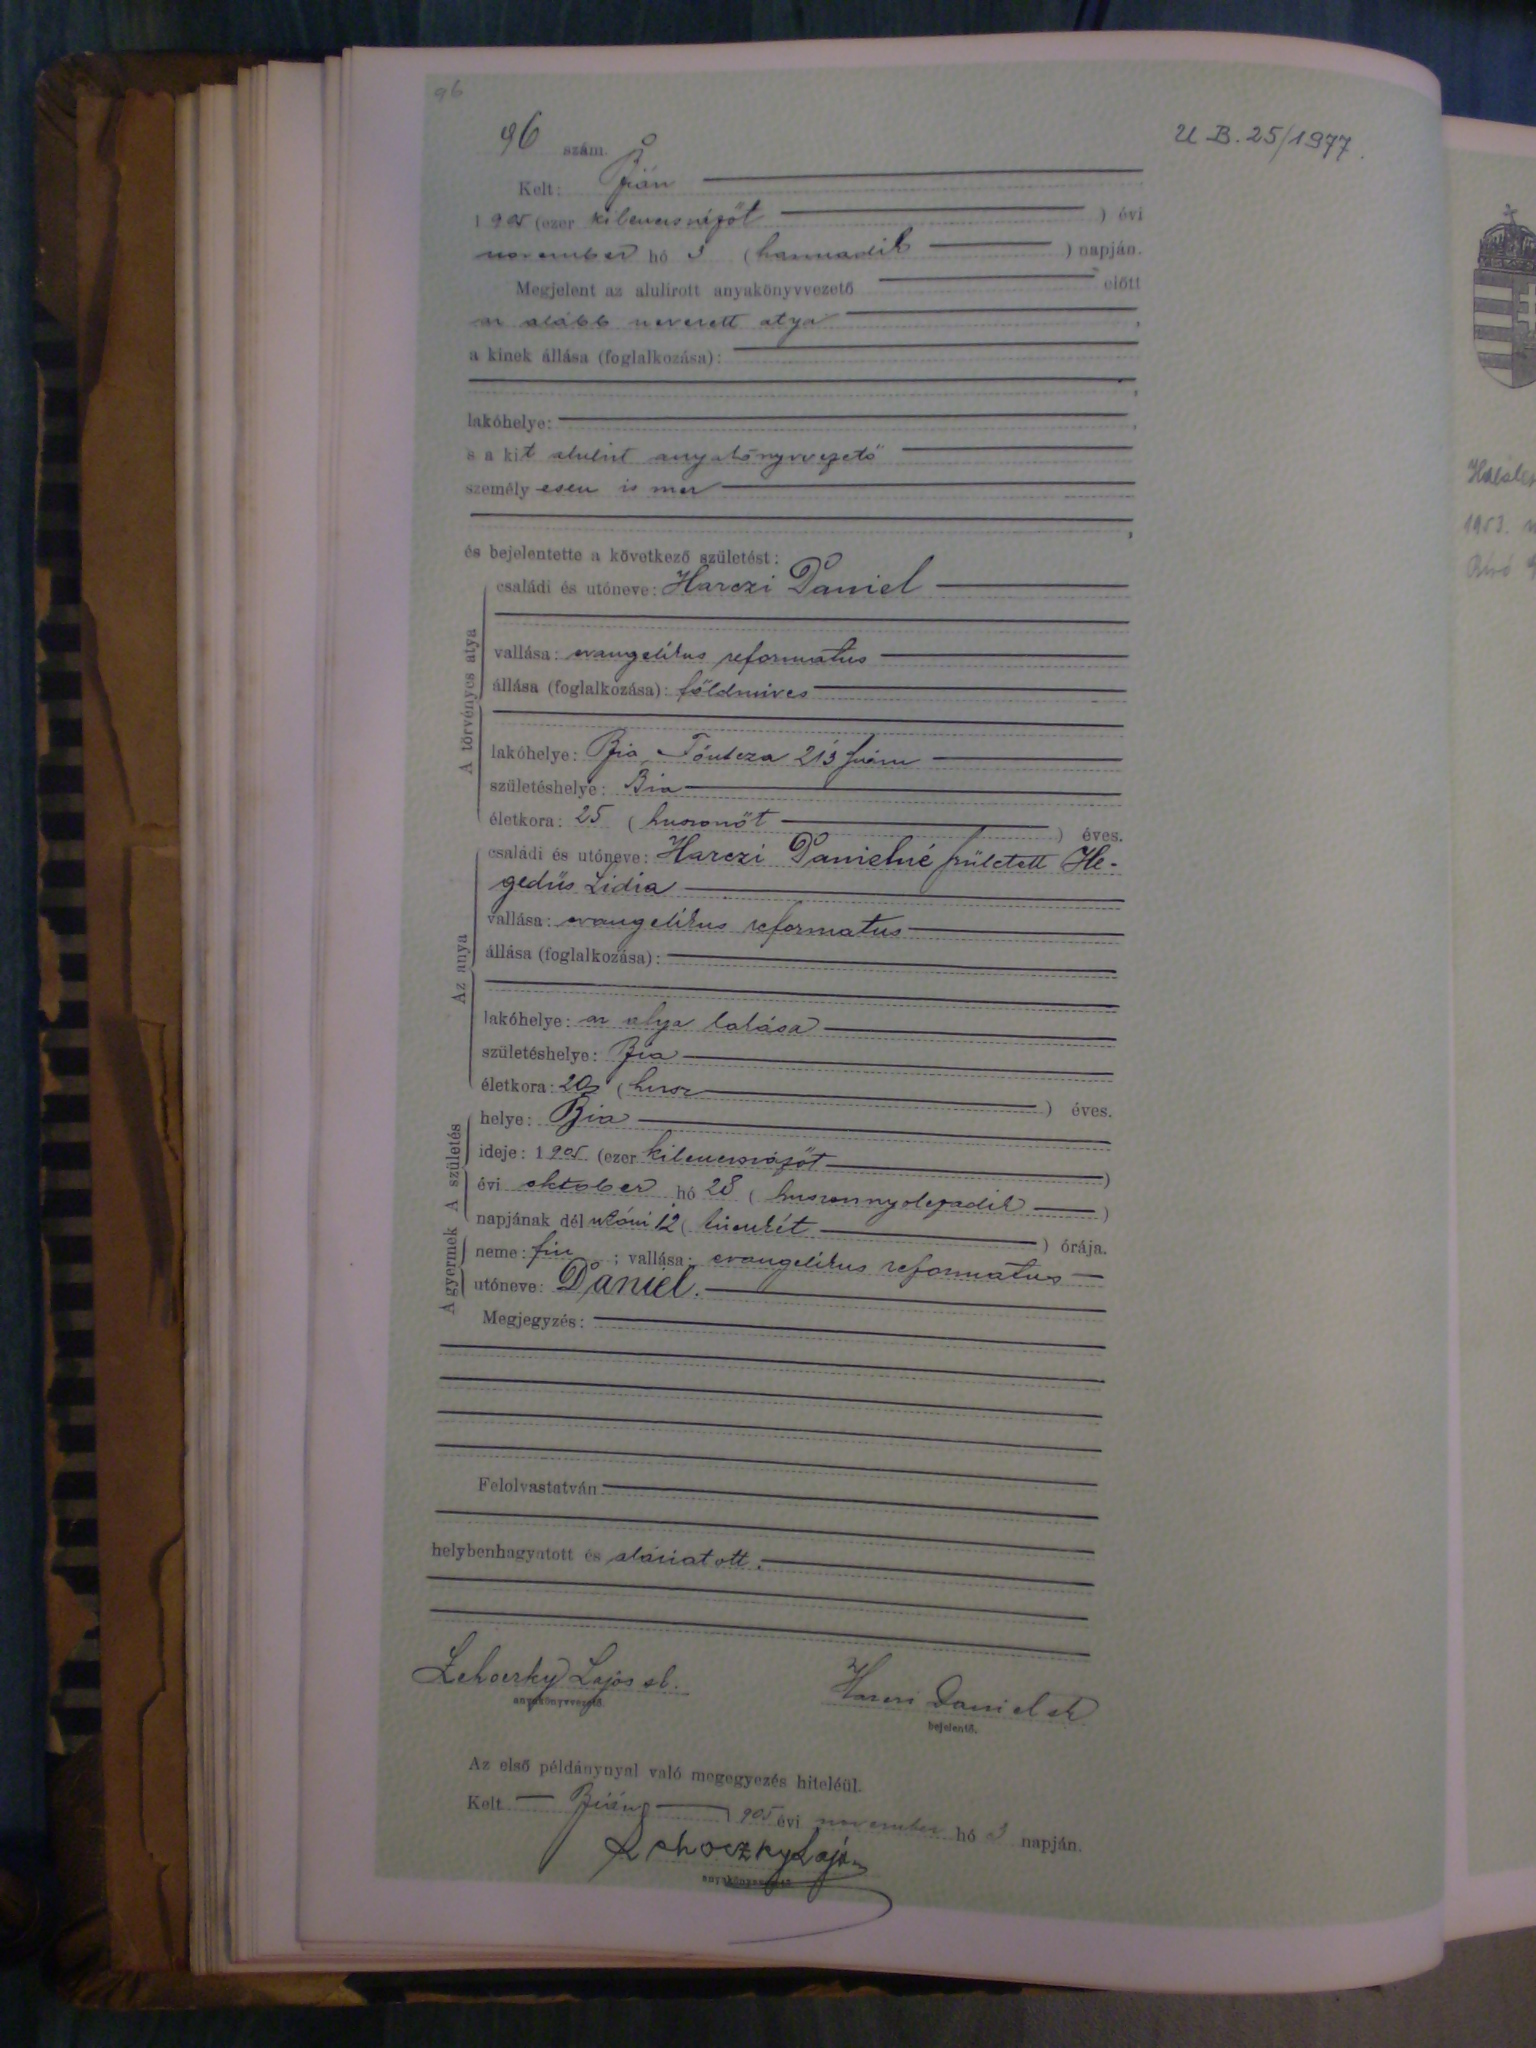 96
96 szám.
U B. 25/1977.
Kelt: Bián
1905 (ezer kilenczszázöt) évi
november hó 3 (harmadik) napján.
Megjelent az alulirott anyakönyvvezető előtt
az alább nevezett atya,
a kinek állása (foglalkozása):
lakóhelye:
s a kit alulirt anyakönyvvezető
személyesen ismer
és bejelentette a következő születést:
A törvényes atya
családi és utóneve: Harczi Daniel
vallása: evangelikus reformatus
állása (foglalkozása): földmives
lakóhelye: Bia, Főutcza 213 szám
születéshelye: Bia
életkora: 25 (huszonöt) éves.
Az anya
családi és utóneve: Harczi Danielné született He-
gedüs Lidia
vallása: evangelikus reformatus
állása (foglalkozása):
lakóhelye: az atya lakása
születéshelye: Bia
életkora: 20 (husz) éves.
A születés
helye: Bia
ideje: 1905 (ezer kilenczszázöt)
évi oktober hó 28 (huszonnyolczadik)
napjának délutáni 12 (tizenkét) órája.
A gyermek
neme: fiu; vallása: evangelikus reformatus
utóneve: Daniel.
Megjegyzés:
Felolvastatván
helybenhagyatott és aláiratott.
Lehoczky Lajos sk. Harczi Daniel sk
anyakönyvvezető. bejelentő.
Az első példánynyal való megegyezés hiteléül.
Kelt Bián, 1905 évi november hó 3 napján.
Lehoczky Lajos
anyakönyvvezető
1953.